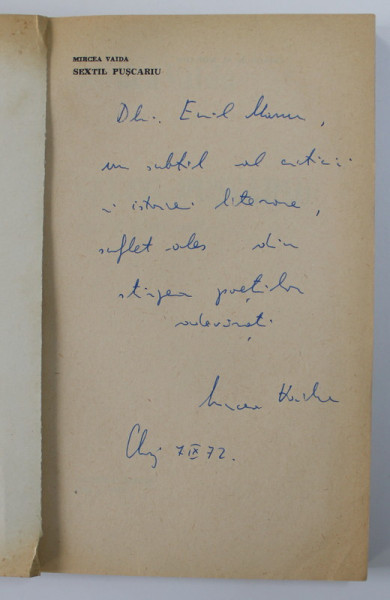 MIRCEA VAIDA
SEXTIL PUȘCARIU
Dlui. Emil Manu,
un subtil al criticii
și istoriei literare,
suflet ales din
stirpea poeților
adevărați.
Mircea Vaida
Cluj 7 IX 72.